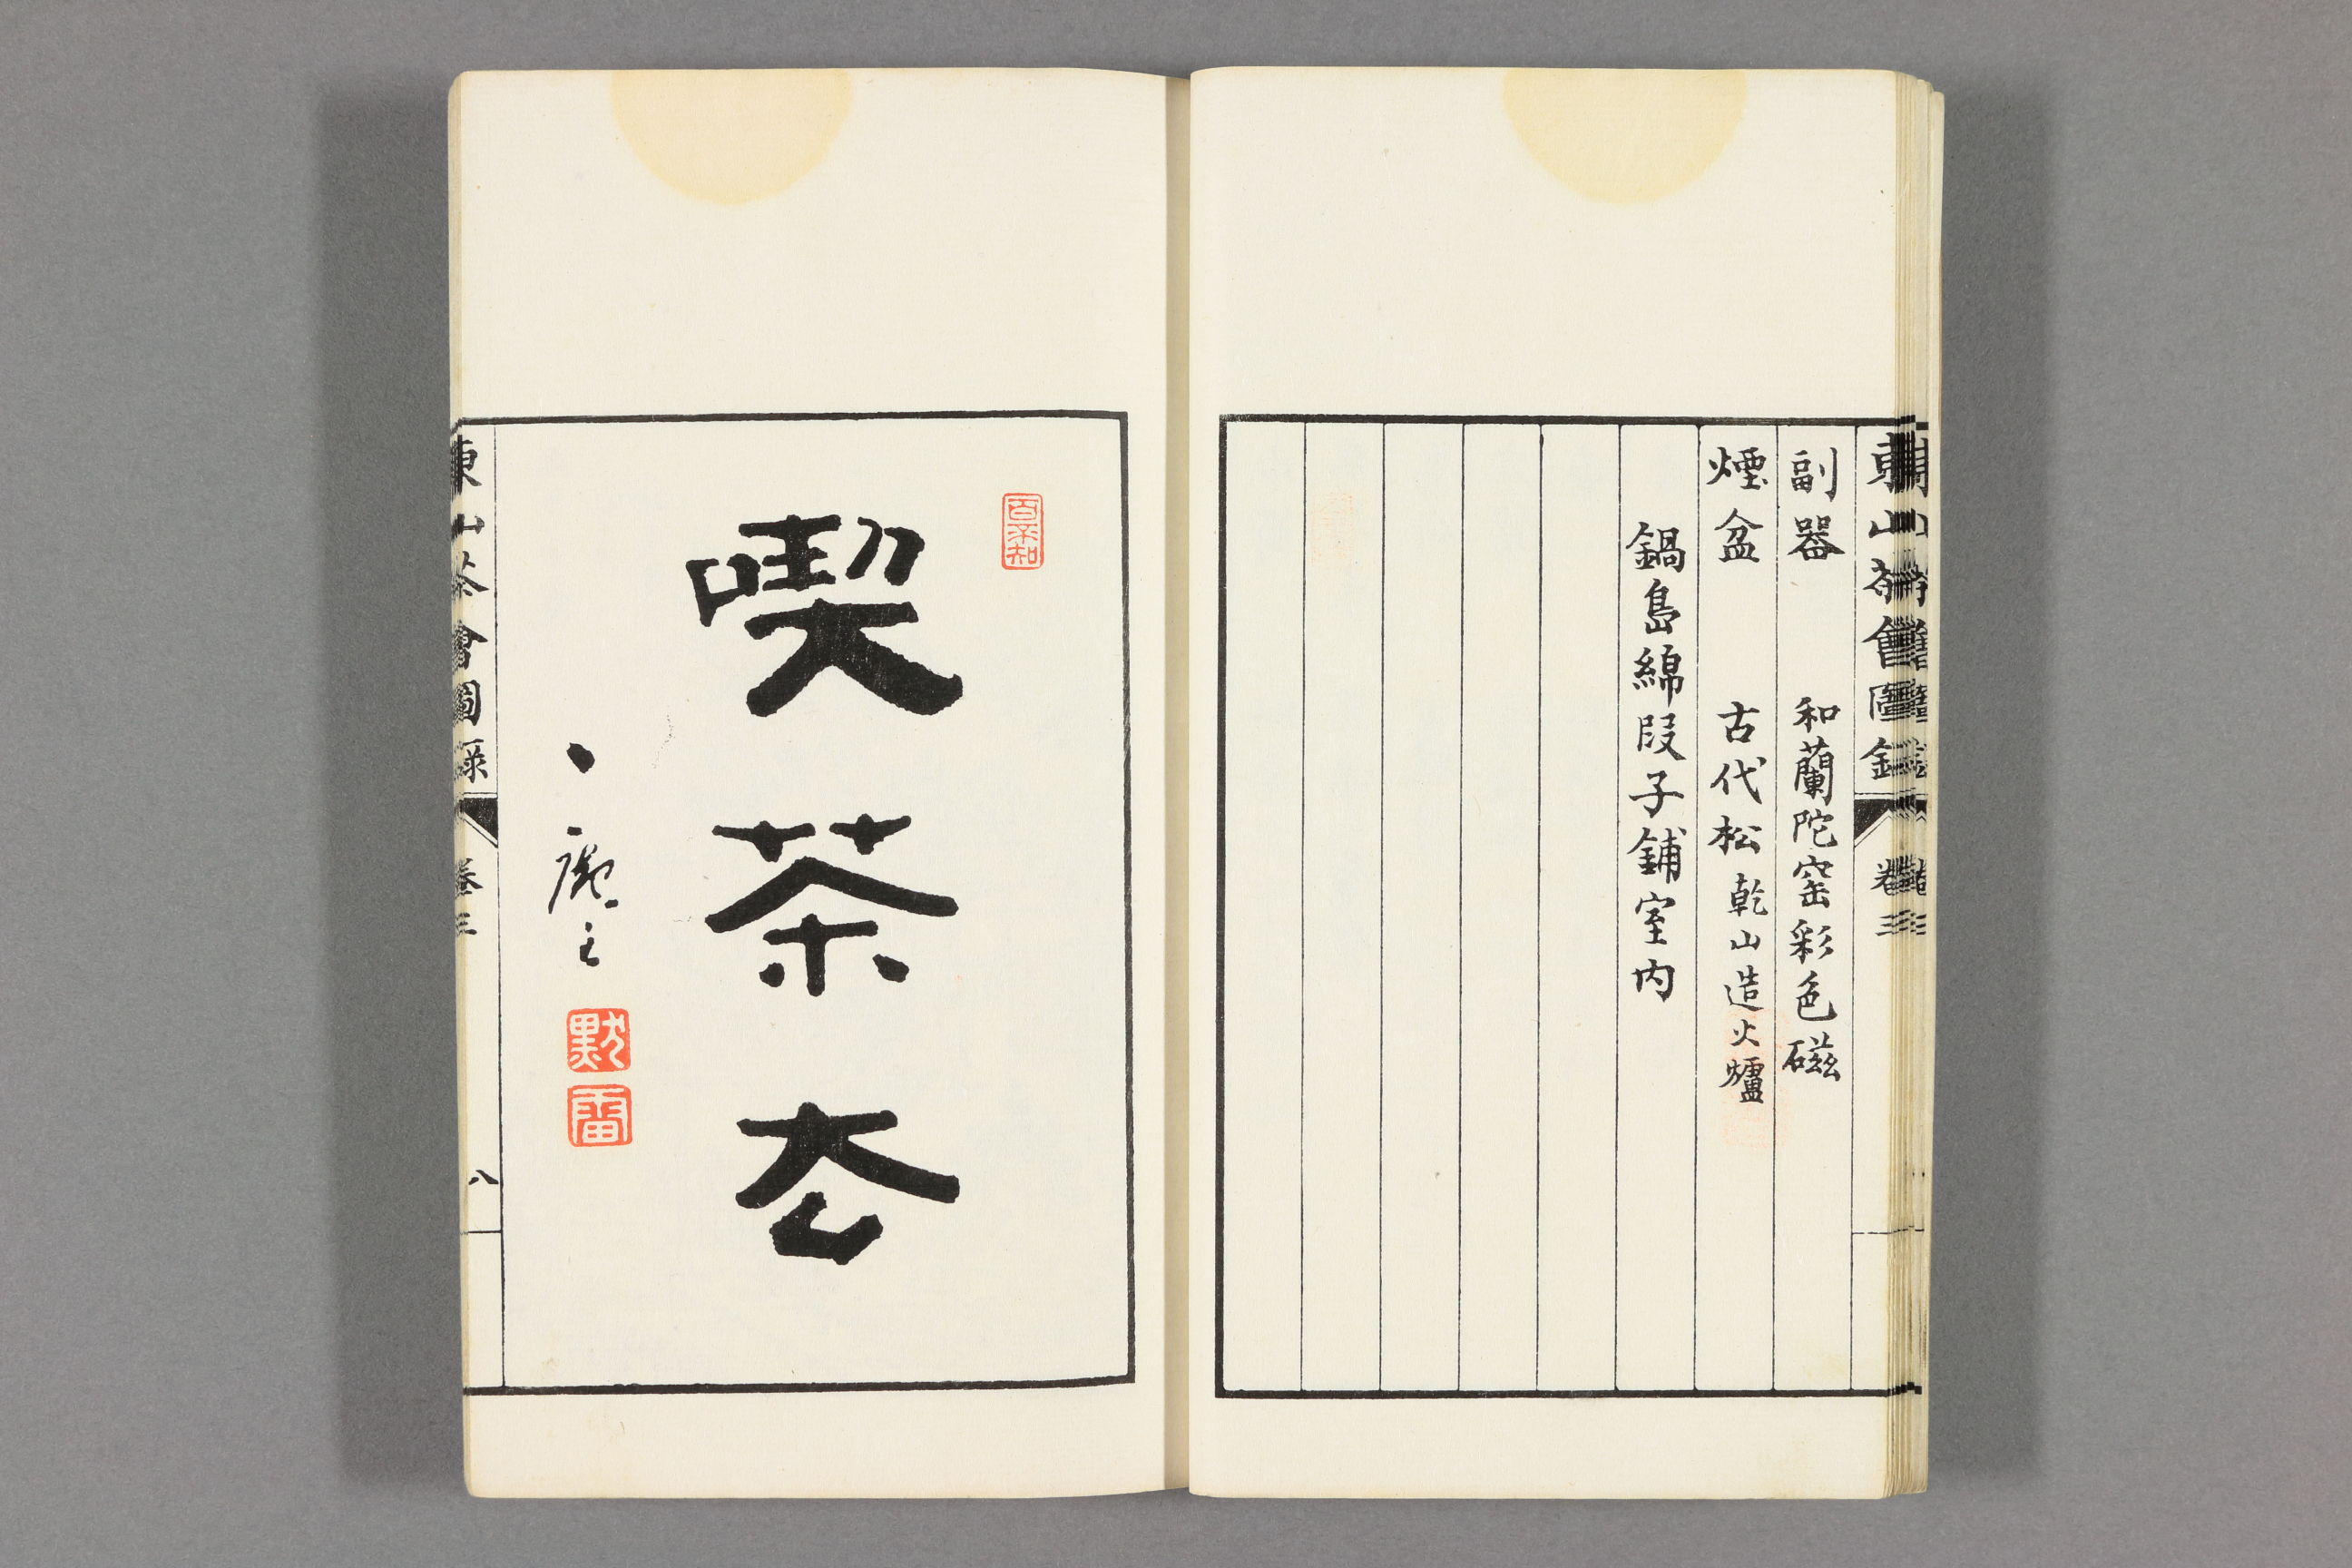 東山茶會圖錄
卷三
副器　和蘭陀窑彩色磁
煙盆　古代松乾山造火爐
鍋島綿段子鋪室内
百不知
喫茶去
東山茶會圖錄
卷三
八